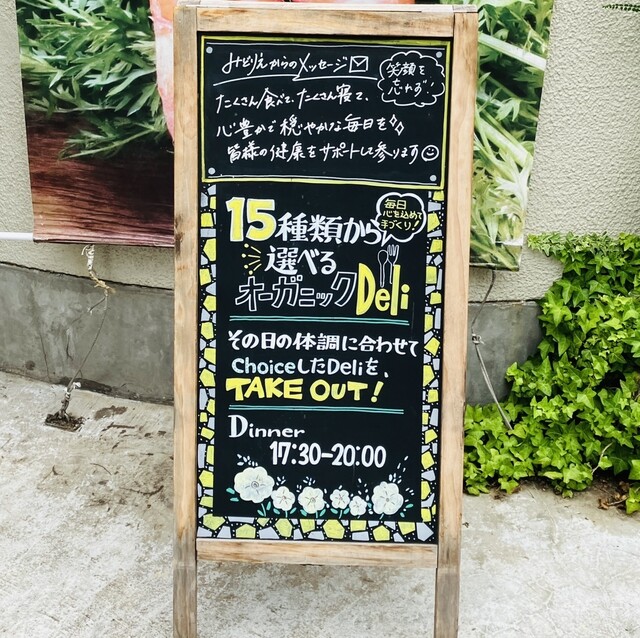 みどりえからのメッセージ
笑顔を
忘れず！
たくさん食べて、たくさん寝て、
心豊かで穏やかな毎日を
皆様の健康をサポートして参ります
15種類から
毎日
心を込めて
手づくり！
選べる
オーガニックDeli
その日の体調に合わせて
ChoiceしたDeliを、
TAKE OUT！
Dinner
17:30-20:00